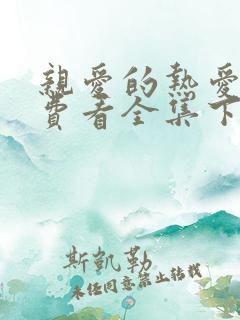 親愛的熱愛
費看全集下
斯凱勒
未經同意禁止轉載